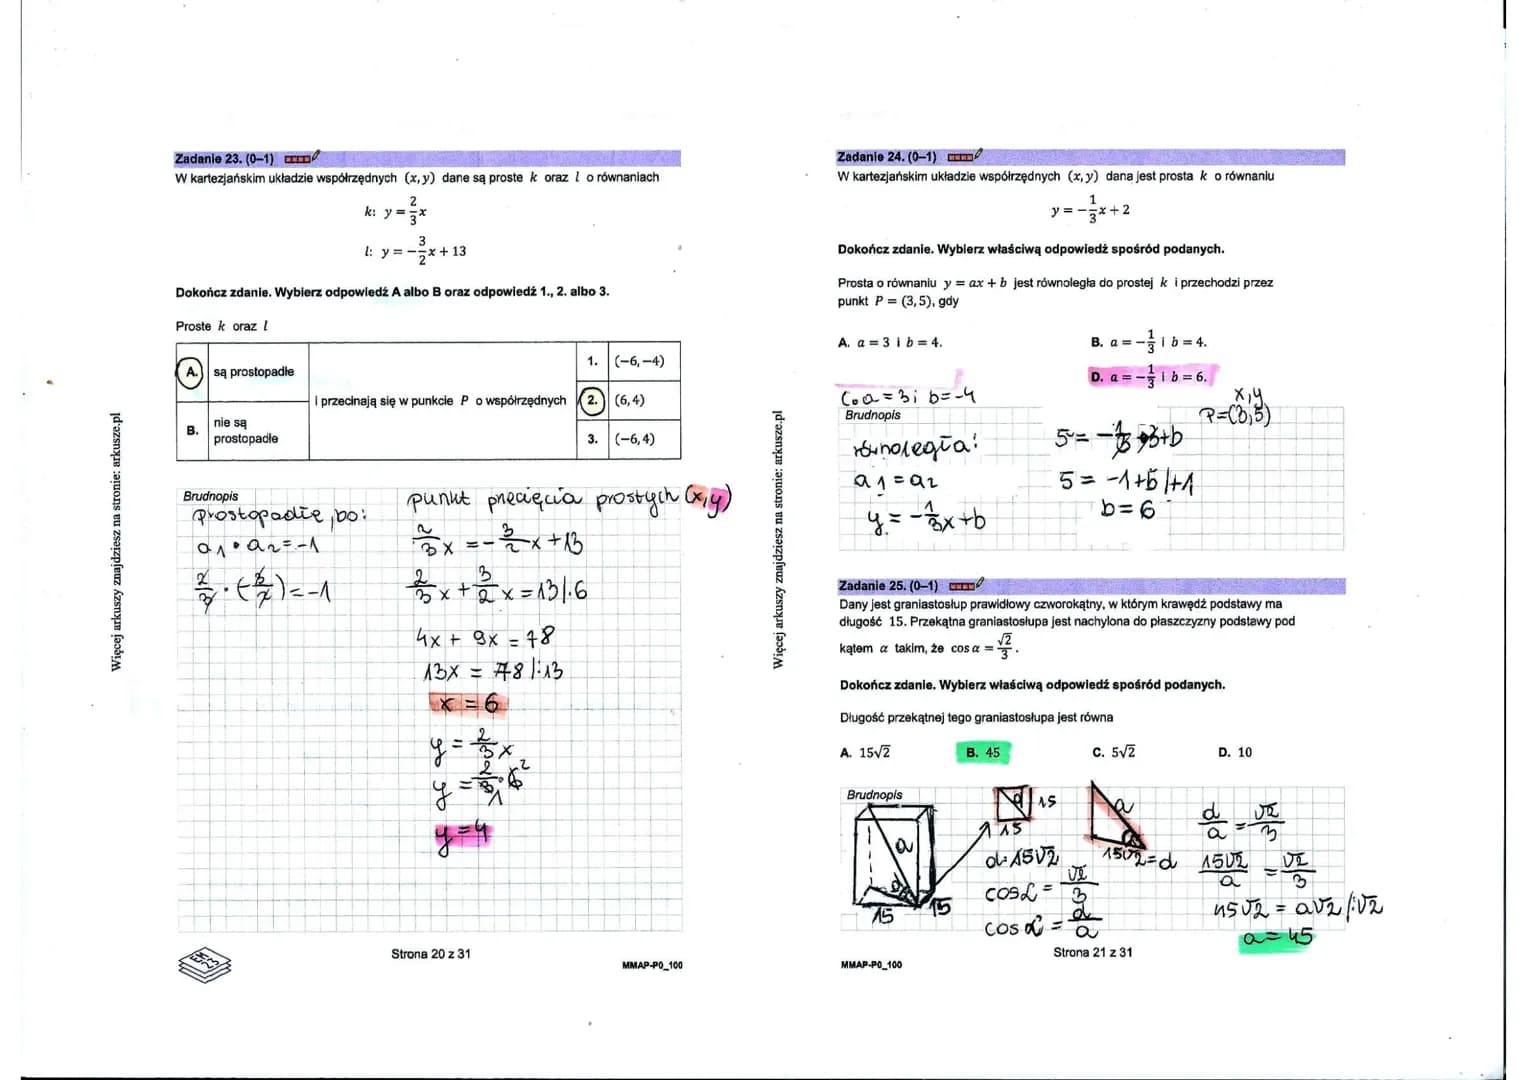 Zadanie 23. (0–1)
W kartezjańskim układzie współrzędnych (x, y) dane są proste k oraz l o równaniach
k: y = 2/3 x
l: y = −3/2 x + 13
Dokończ zdanie. Wybierz odpowiedź A albo B oraz odpowiedź 1., 2. albo 3.
Proste k oraz l
A. są prostopadłe
B. nie są prostopadłe
i przecinają się w punkcie P o współrzędnych
1. (−6, −4)
2. (6, 4)
3. (−6, 4)
Brudnopis
Prostopadłe, bo:
a1 · a2 = -1
2/3 · (-3/2) = -1
punkt przecięcia prostych (x,y)
2/3 x = -3/2 x + 13
2/3 x + 3/2 x = 13 |·6
4x + 9x = 78
13x = 78 |:13
x = 6
y = 2/3 x
y = 2/3 · 6 2
1
y = 4
Strona 20 z 31
MMAP-P0_100
Więcej arkuszy znajdziesz na stronie: arkusze.pl
Zadanie 24. (0–1)
W kartezjańskim układzie współrzędnych (x, y) dana jest prosta k o równaniu
y = −1/3 x + 2
Dokończ zdanie. Wybierz właściwą odpowiedź spośród podanych.
Prosta o równaniu y = ax + b jest równoległa do prostej k i przechodzi przez
punkt P = (3, 5), gdy
A. a = 3 i b = 4.
B. a = −1/3 i b = 4.
C. a = 3 i b = -4
D. a = −1/3 i b = 6.
Brudnopis
równoległa:
a1 = a2
y = -1/3 x + b
x,y
P=(3,5)
5 = -1/3 · 3 + b
5 = -1 + b /+1
b = 6
Zadanie 25. (0–1)
Dany jest graniastosłup prawidłowy czworokątny, w którym krawędź podstawy ma
długość 15. Przekątna graniastosłupa jest nachylona do płaszczyzny podstawy pod
kątem α takim, że cos α = √2/3 .
Dokończ zdanie. Wybierz właściwą odpowiedź spośród podanych.
Długość przekątnej tego graniastosłupa jest równa
A. 15√2
B. 45
C. 5√2
D. 10
Brudnopis
a
d
15
15
d
15
15
d=15√2
cosα = √2/3
cos α = d/a
a
α
15√2=d
d/a = √2/3
15√2/a = √2/3
45√2 = a√2 /:√2
a = 45
Strona 21 z 31
MMAP-P0_100
Więcej arkuszy znajdziesz na stronie: arkusze.pl